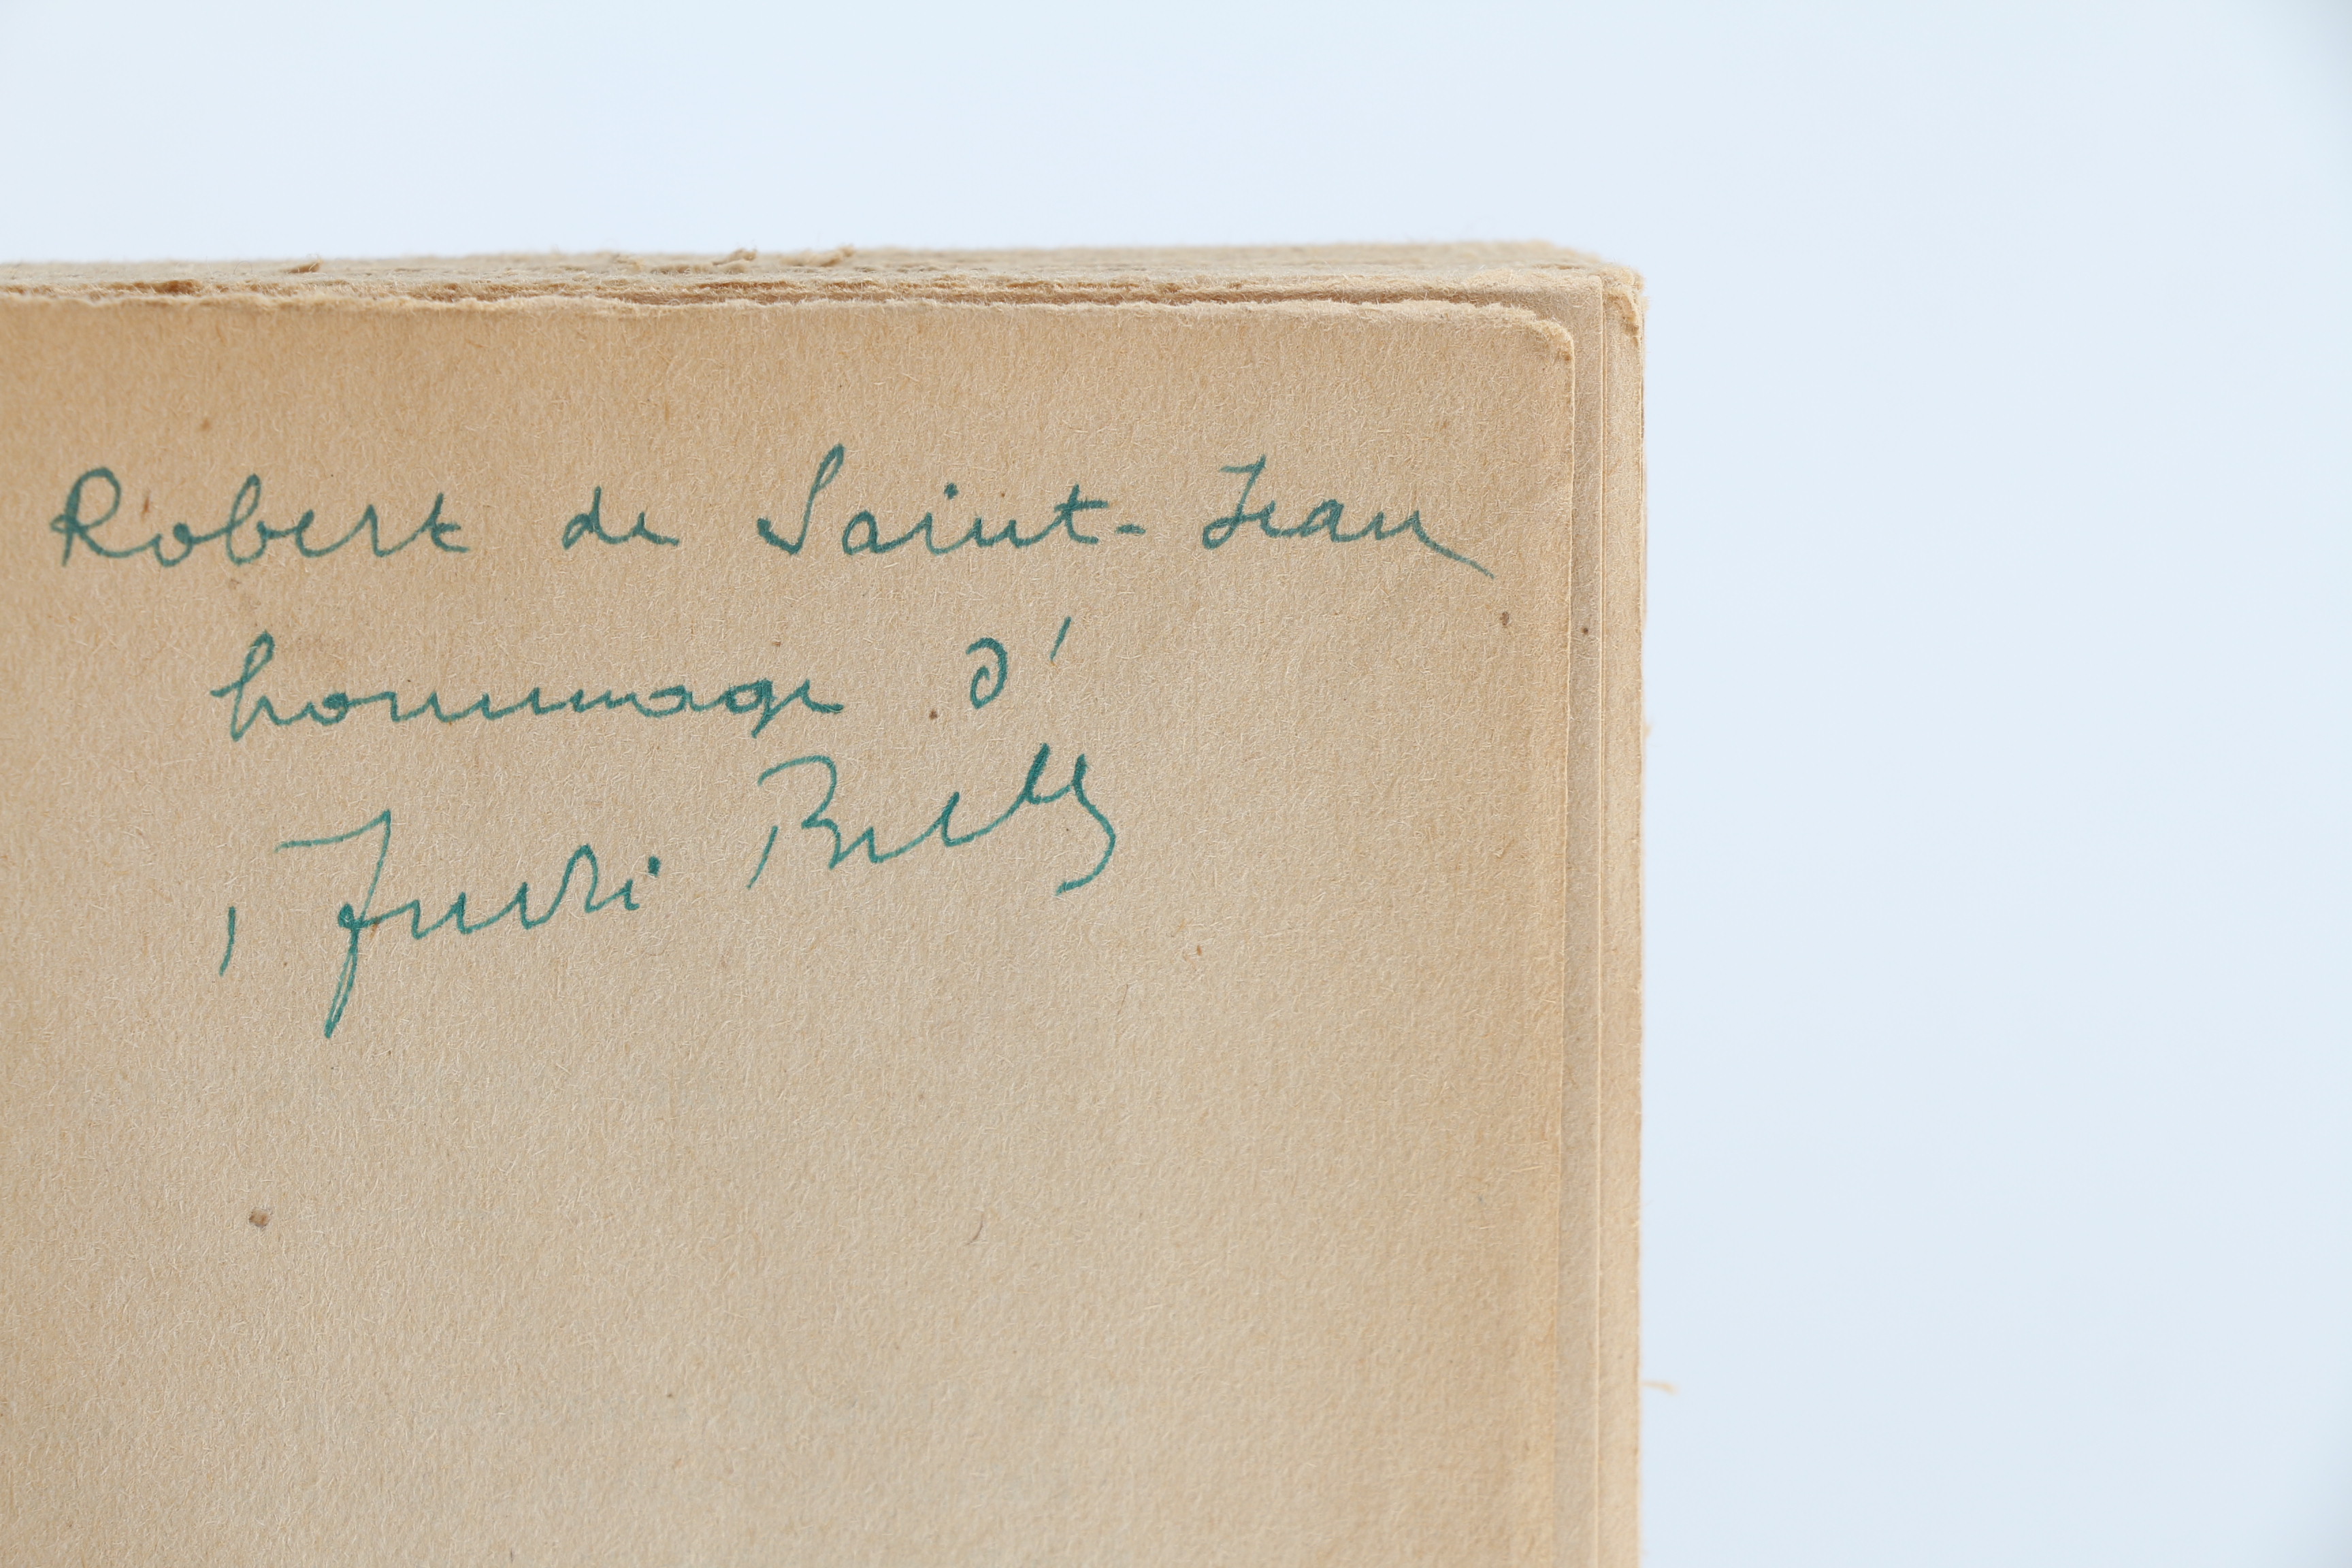 Robert de Saint-Jean
hommage d'
André Billy